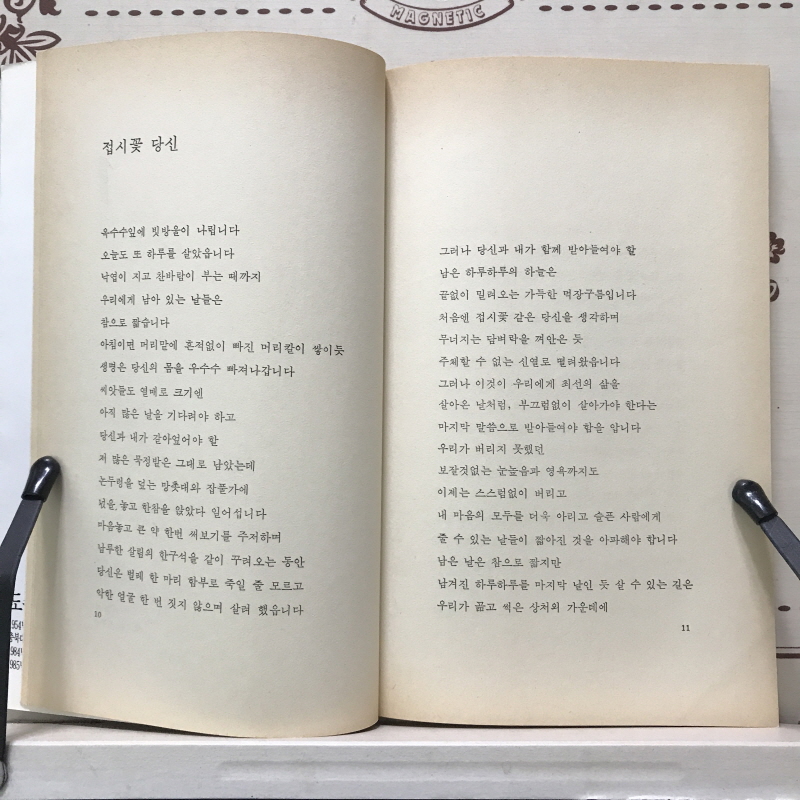 MAGNETIC
접시꽃 당신
옥수수잎에 빗방울이 나립니다
오늘도 또 하루를 살았읍니다
낙엽이 지고 찬바람이 부는 때까지
우리에게 남아 있는 날들은
참으로 짧습니다
아침이면 머리맡에 흔적없이 빠진 머리칼이 쌓이듯
생명은 당신의 몸을 우수수 빠져나갑니다
씨앗들도 열매로 크기엔
아직 많은 날을 기다려야 하고
당신과 내가 갈아엎어야 할
저 많은 묵정밭은 그대로 남았는데
논두렁을 덮는 망촛대와 잡풀가에
넋을 놓고 한참을 앉았다 일어섭니다
마음놓고 큰 약 한번 써보기를 주저하며
남루한 살림의 한구석을 같이 꾸려오는 동안
당신은 벌레 한 마리 함부로 죽일 줄 모르고
악한 얼굴 한 번 짓지 않으며 살려 했읍니다
10
그러나 당신과 내가 함께 받아들여야 할
남은 하루하루의 하늘은
끝없이 밀려오는 가득한 먹장구름입니다
처음엔 접시꽃 같은 당신을 생각하며
무너지는 담벼락을 껴안은 듯
주체할 수 없는 신열로 떨려왔읍니다
그러나 이것이 우리에게 최선의 삶을
살아온 날처럼, 부끄럼없이 살아가야 한다는
마지막 말씀으로 받아들여야 함을 압니다
우리가 버리지 못했던
보잘것없는 눈높음과 영욕까지도
이제는 스스럼없이 버리고
내 마음의 모두를 더욱 아리고 슬픈 사람에게
줄 수 있는 날들이 짧아진 것을 아파해야 합니다
남은 날은 참으로 짧지만
남겨진 하루하루를 마지막 날인 듯 살 수 있는 길은
우리가 곪고 썩은 상처의 가운데에
11